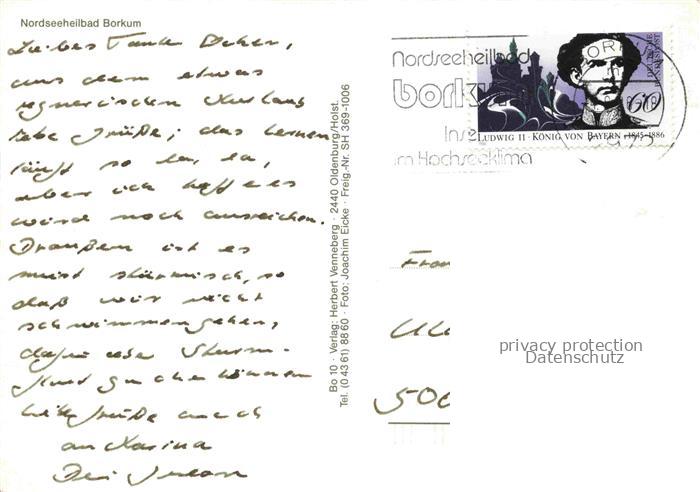 Nordseeheilbad Borkum
Liebes Tante
aus dem etwas
regnerischen
liebe Grüße, das Lernen
läuft so la, la,
aber ich hoffe es
wird noch ausreichen.
Draußen ist es
meist stürmisch, so
daß wir nicht
schwimmengehen,
dafür aber Sturm-
können
Grüße auch
an Karina
Dein
Bo 10 · Verlag: Herbert Venneberg · 2440 Oldenburg/Holst.
Tel. (0 43 61) 88 60 · Foto: Joachim Eicke · Freig.-Nr. SH 369-1006
Nordseeheilbad
bork
Inse
im Hochseeklima
DEUTSCHE
BUNDESPOST
60
LUDWIG II · KÖNIG VON BAYERN · 1845-1886
500
privacy protection
Datenschutz